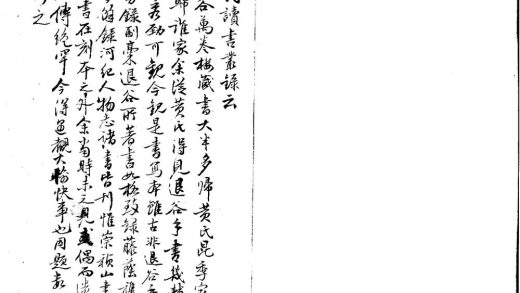 讀書叢錄云
谷萬卷樓藏書大半多歸黃氏昆季家
歸誰家余從黃氏得見退谷手書幾
秀勁可觀今觀是書寫本雖古非退谷
錄副稾退谷所著書如格致錄藤蔭
錄河紀人物志諸書皆刊惟崇禎山書
書在刻本之外余當時未之見偶而
傳絕罕今得通觀大愉快事也因題
之